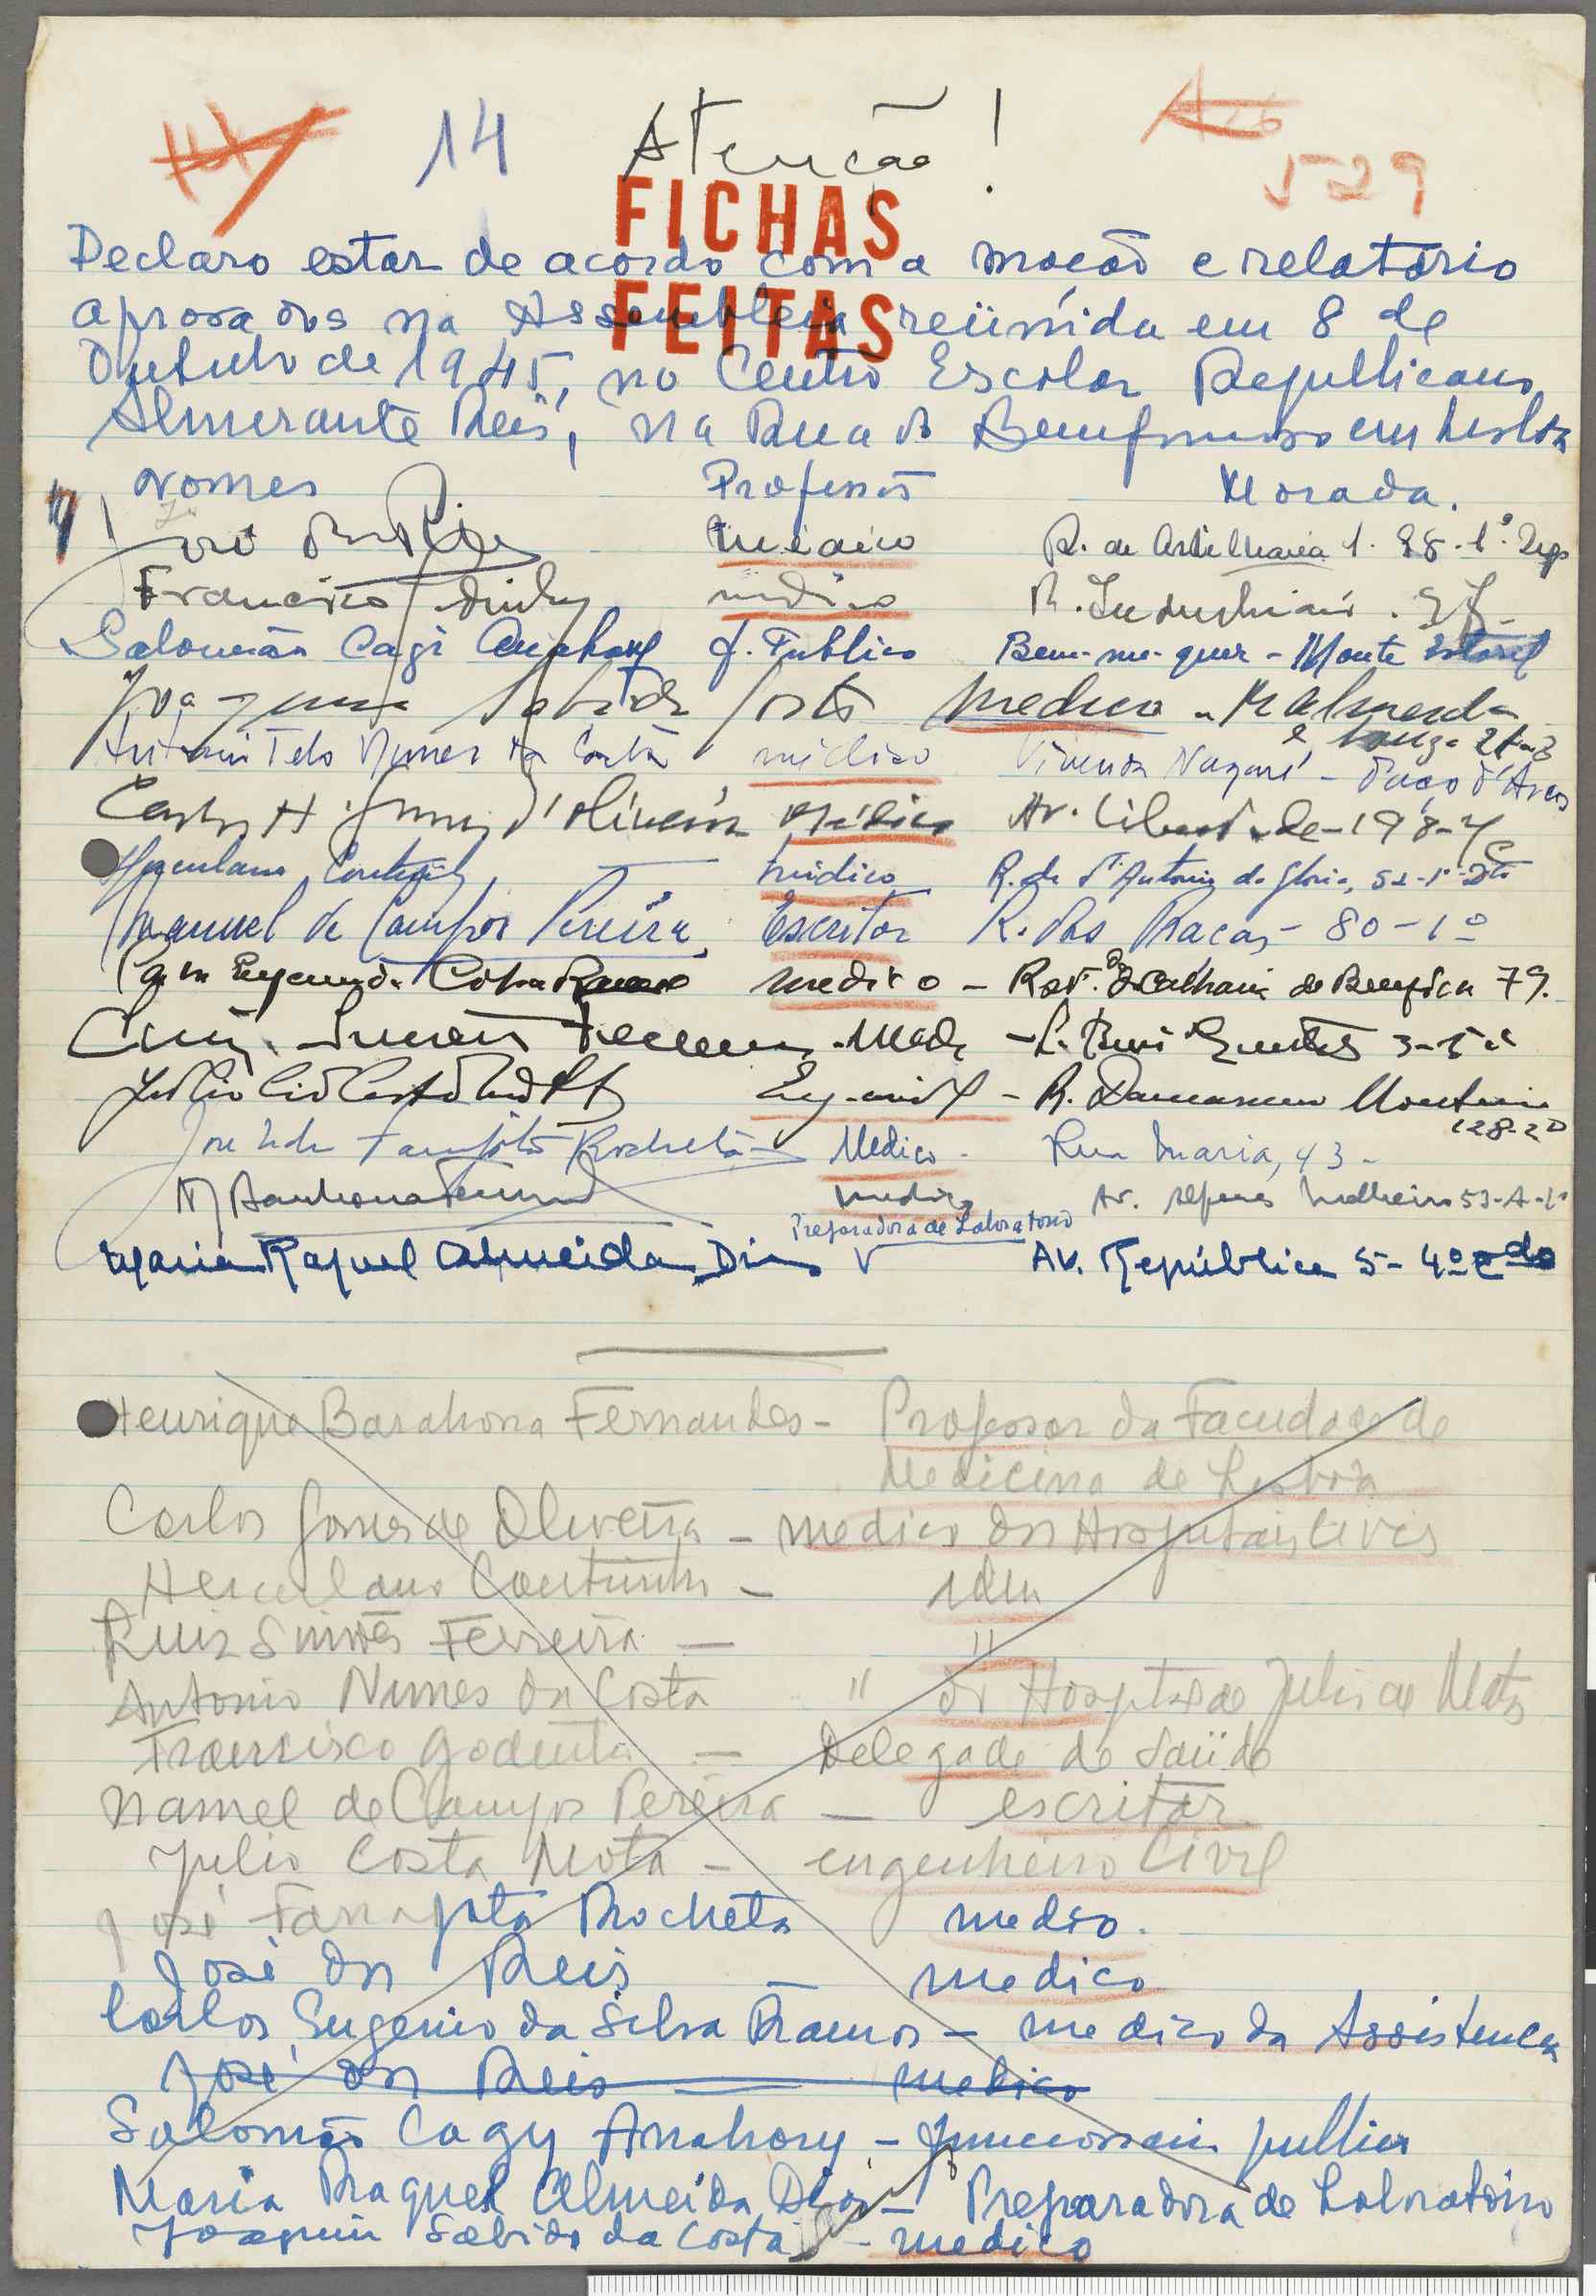 14 Atenção!
529
FICHAS
FEITAS
Declaro estar de acordo com a moção e relatório
aprovados na Assembleia reünida em 8 de
Outubro de 1945, no Centro Escolar Republicano
Almirante Reis, na Rua do Bemformoso em Lisboa
Nomes Profissão Morada.
José dos Reis médico R. da Artilharia 1. 88-1º Dto
Francisco médico R.
Salomão Cagi Anahory f. Publico Bem-me-quer - Monte Estoril
Joaquim Sabido Costa Medico - R Almeida
e Souza 21-
Antonio Telo Nunes da Costa médico Vivenda Nazaré - Paço d'Arcos
Carlos H. Gomes d'Oliveira Médico Av. Liberdade-198-
Herculano Coutinho médico R. de Sto Antonio da Gloria, 52-1º-Dto
Manuel de Campos Pereira, Escritor R. das Praças - 80-1º
Carlos Eugenio da Silva Ramos medico - 79.
Luiz Simões Ferreira - Med - R. 3-5º
Julio Costa Mota Eng. civil - R. Damasceno Monteiro
128-2º
José Farrajota Rocheta Medico - Rua Maria, 43-
H Barahona Fernandes medico Av. Malheiro 53-A-1º
Preparadora de Laboratorio
Maria Raquel Almeida Dias V Av. República 5- 4º
Henrique Barahona Fernandes - Professor da Facudade de
Medicina de Lisboa
Carlos Gomes de Oliveira - medico dos Hospitais Civis
Herculano Coutinho - idem
Luiz Simões Ferreira - "
Antonio Nunes da Costa " do Hospital de Julio de Matos
Francisco Godinho - Delegado de Saüde
Manuel de Campos Pereira - escritor
Julio Costa Mota - engenheiro Civil
José Farrajota Rocheta medico.
José dos Reis - medico
Carlos Eugenio da Silva Ramos - medico da Assistencia
José dos Reis - medico
Salomão Cagy Anahory - funcionario publico
Maria Raquel Almeida Dias - Preparadora de Laboratório
Joaquim Sabido da Costa - medico